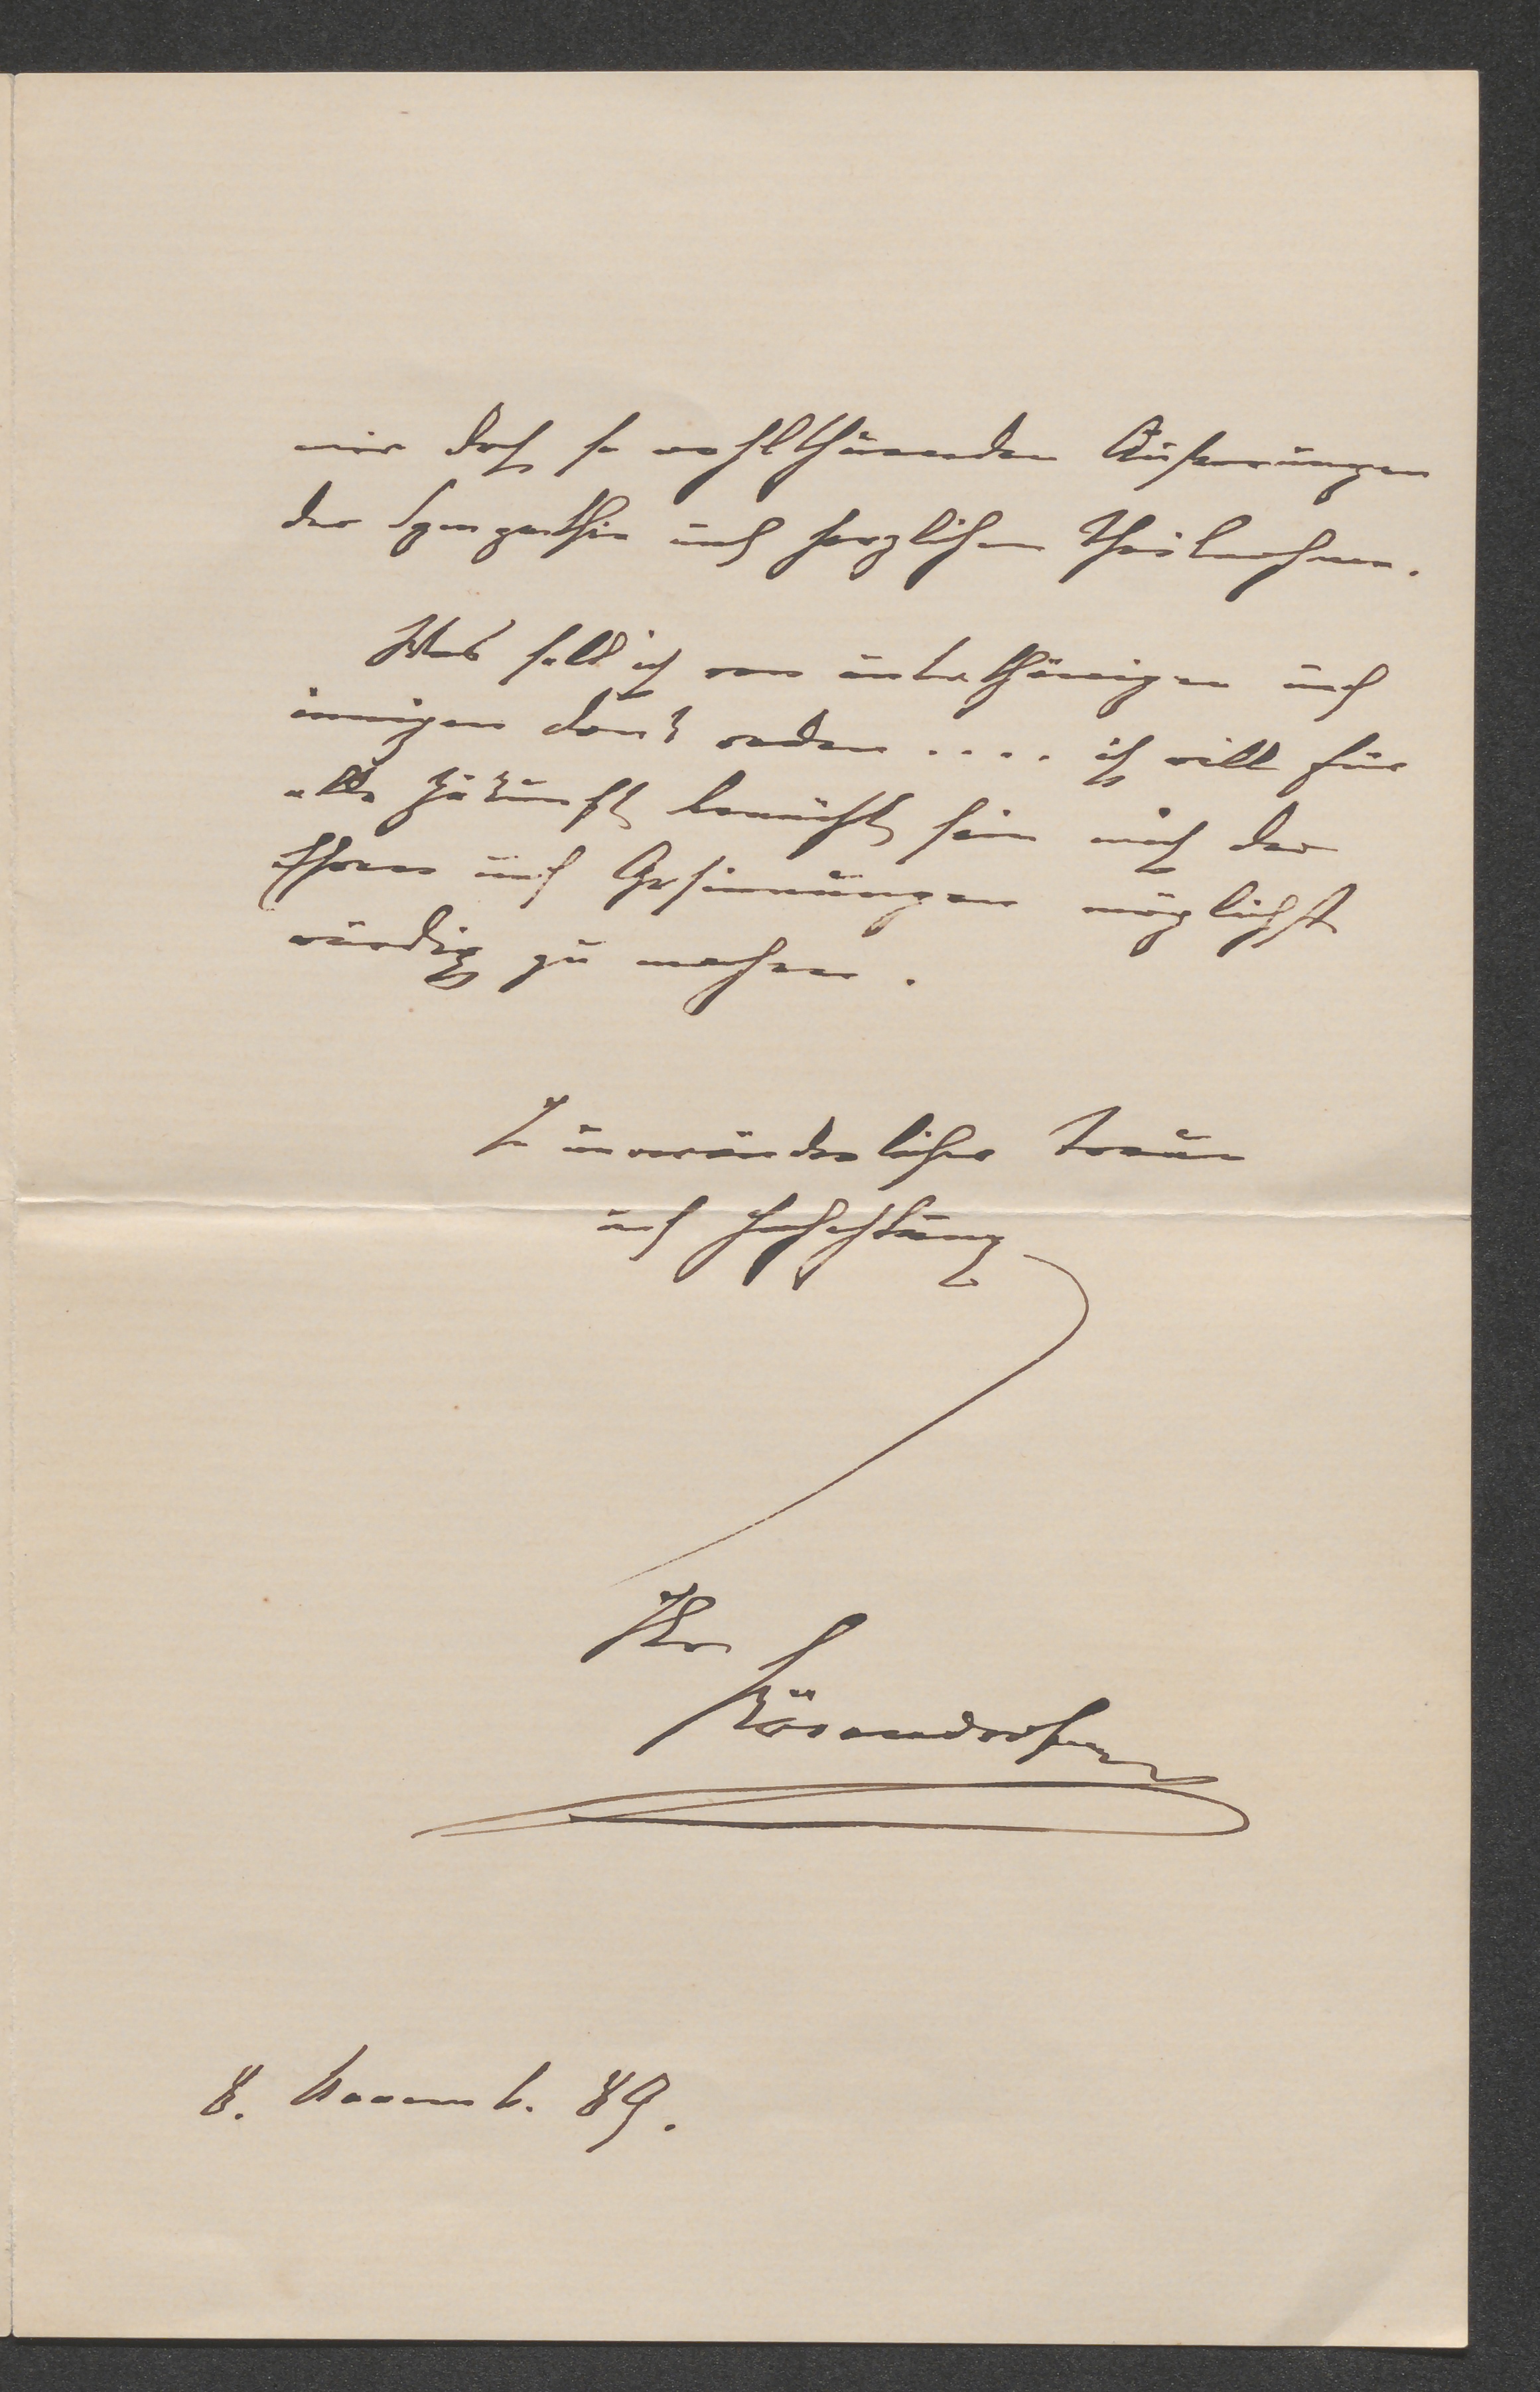 mir doch so wohlthuenden Äußerungen
der Sympathie und herzlichen Theilnahme.
Was soll ich von unterthänigen und
innigen Dank reden .... ich will für
alle Zukunft bemüht sein mich der
Ehren und Gesinnungen möglichst
würdig zu machen.
In unveränderlicher Treue
und Hochachtung
Ihr
LBösendorfer
8. Novemb. 89.